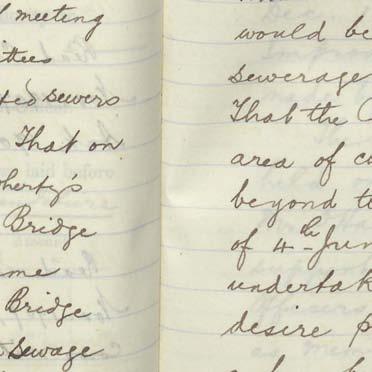 meeting
ittees
ted sewers
That on
Bridge
me
Bridge
Sewage
would be
sewerage
That the
area of co
beyond t
of 4th Jun
undertak
desire p